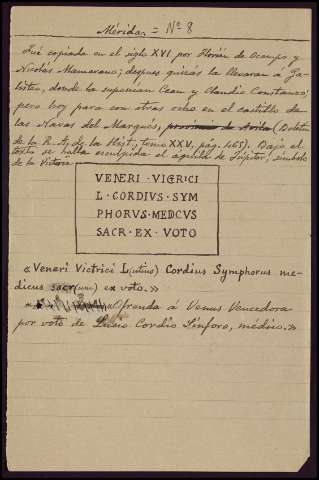 Mérida = Nº 8
Fué copiada en el siglo XVI por Florián de Ocampo y
Nicolás Mamerano; despues quizás la llevaran á Ga-
listeo, donde la suponian Cean y Claudio Constanzo;
pero hoy para con otras ocho en el castillo de
las Navas del Marqués, provincia de Avila (Boletin
de la R. A. de la Hist., tomo XXV, pág. 465). Bajo el
texto se halla esculpida el aguila de Júpiter, símbolo
de la Victoria.
VENERI · VICTRICI
L · CORDIVS · SYM
PHORVS · MEDCVS
SACR · EX · VOTO
«Veneri Victrici L(utius) Cordius Symphorus me-
dicus sacr(um) ex voto.»
Ofrenda á Venus Vencedora
por voto de Lucio Cordio Sinforo, médico.»